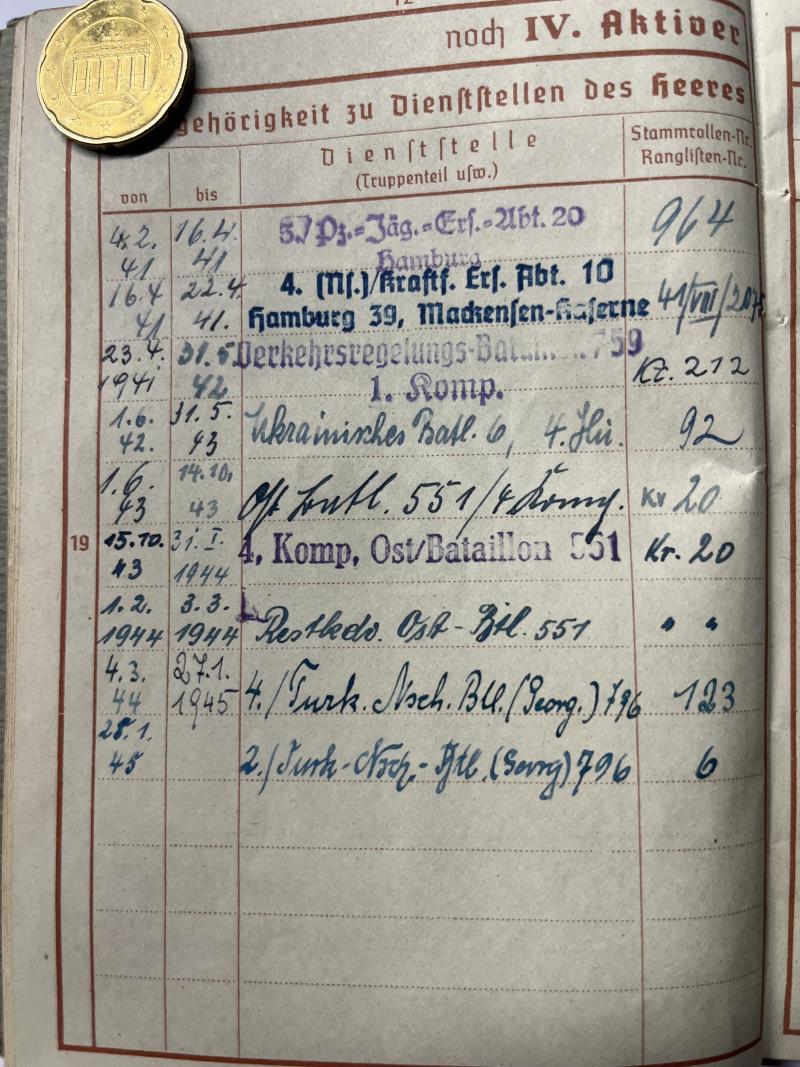 12
noch IV. Aktiver
gehörigkeit zu Dienststellen des Heeres
von bis Dienststelle (Truppenteil usw.) Stammrollen-Nr. Ranglisten-Nr.
4.2. 41 16.4. 41 5./Pz.=Jäg.=Ers.=Abt. 20 Hamburg 964
16.4 41 22.4. 41. 4. (Ns.)/Kraftf. Ers. Abt. 10 Hamburg 39, Mackensen-Kaserne 41/VIII/
23.4. 1941 31.5 42 Verkehrsregelungs-Bataillon 759 1. Komp. Kr. 212
1.6. 42. 31.5. 43 Ukrainisches Batl. 6, 4. Hu. 92
1.6. 43 14.10. 43 Ost Batl. 551/4 Komp. Kr 20
19 15.10. 43 31.I. 1944 4. Komp. Ost/Bataillon 551 Kr. 20
1.2. 1944 3.3. 1944 Restkdo. Ost-Btl. 551 " "
4.3. 44 27.1. 1945 4./Turk. Nsch. Btl. (Georg.) 796 123
28.1. 45 2./Turk-Nsch.-Btl. (Georg) 796 6